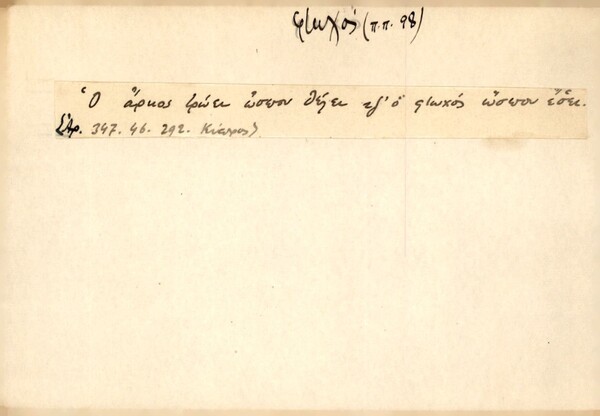 φτωχός (π.π. 98)
Ὁ ἄρκος τρώει ὥσπου θέλει τζ' ὁ φτωχός ὥσπου ἔσει.
Σάρ. 347. 46. 292. Κύπρος